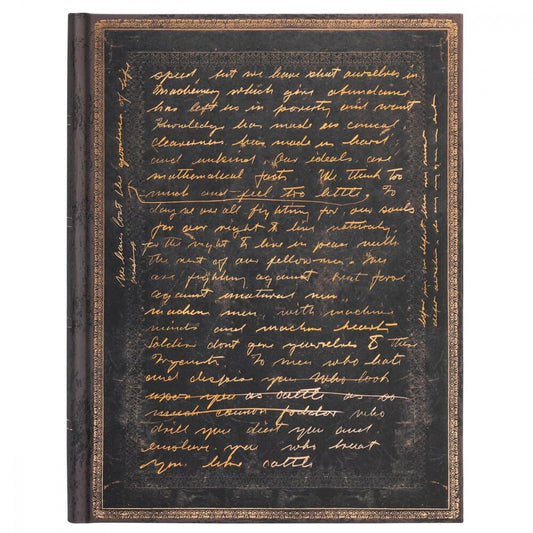 speed, but we have shut ourselves in
machinery which gives abundance
has left us in poverty and want
Knowledge has made us cynical
cleverness has made us hard
and unkind. Our ideals are
mathematical facts. We think too
much and feel too little. To
day we are all fighting for our souls
for our right to live naturally
for the right to live in peace with
the rest of our fellowmen.
are fighting against
against unnatural men,
machine men, with machine
minds and machine hearts
Soldiers dont give yourselves to these
men who
and despise you who look
upon you as cattle as so
much cannon fodder who
drill you diet you and
enslave you who treat
you like cattle
We have lost the